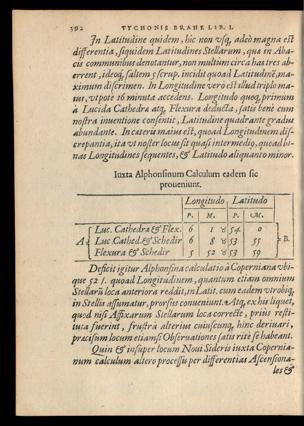 392 TYCHONIS BRAHE LIB. I.
In Latitudine quidem, hic non vsq, adeò magna est
differentia, siquidem Latitudines Stellarum, quæ in Aba-
cis communibus denotantur, non multùm circa has tres ab-
errent, ideoq, saltem 5 scrup. incidit quoad Latitudinē, ma-
ximum discrimen. In Longitudine verò est illud triplo ma-
ius, vtpote 16 minuta accedens. Longitudo quoq, primùm
à Lucida Cathedræ atq, Flexura deducta, satis benè cum
nostra inuentione consentit, Latitudine quadrante gradus
abundante. In cæteris maius est, quoad Longitudinem dis-
crepantia, ita vt noster locus sit quasi intermedio, quoad bi-
nas Longitudines sequentes, & Latitudo aliquanto minor.
Iuxta Alphonsinum Calculum eadem sic
proueniunt.
Longitudo Latitudo
P. M. P. M.
Luc. Cathedræ & Flex. 6 1 ♉ 54 0
A Luc. Cathed. & Schedir 6 8 ♉ 53 55 B
Flexura & Schedir 5 52 ♉ 53 59
Deficit igitur Alphonsina calculatio à Coperniana vbi-
que 52 /. quoad Longitudinem, quantum etiam omnium
Stellarū loca anteriora reddit, in Latit. cum eadem vtrobiq,
in Stellis assumatur, prorsus conueniunt. Atq, ex his liquet,
quod nisi Affixarum Stellarum loca correctè, priùs resti-
tuta fuerint, frustrà alterius cuiuscunq, hinc deriuari,
præcisum locum etiamsi Obseruationes satis ritè se habeant.
Quin & insuper locum Noui Sideris iuxta Copernia-
num calculum altero processu per differentias Ascensiona-
les &